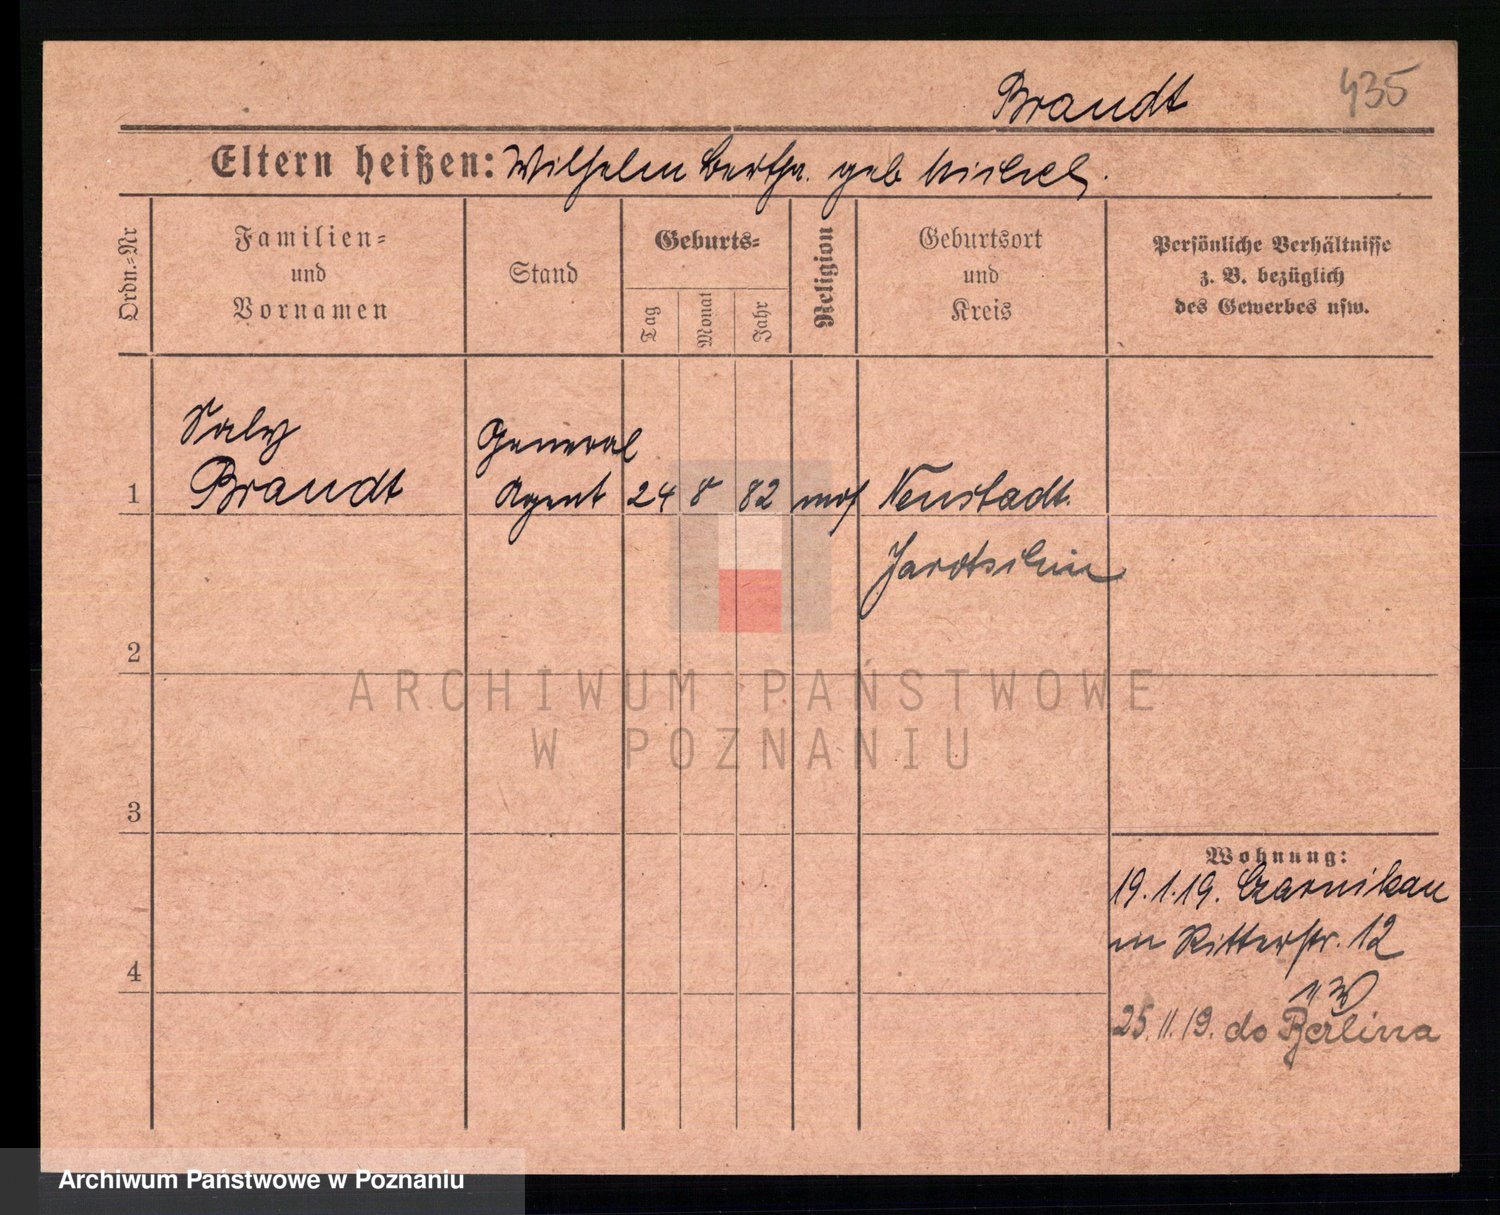 Brandt 435
Eltern heißen: Wilhelm Bertha. geb Nickel.
Ordn.-Nr
Familien-
und
Vornamen
Stand
Geburts-
Tag
Monat
Jahr
Religion
Geburtsort
und
Kreis
Persönliche Verhältnisse
z. B. bezüglich
des Gewerbes usw.
1
Saly
Brandt
General
Agent
24 8 82 mos
Neustadt.
Jarotschin
2
3
4
Wohnung:
19.1.19. Czarnikau
Ritterstr. 12
25.11.19. do Berlina
ARCHIWUM PAŃSTWOWE
W POZNANIU
Archiwum Państwowe w Poznaniu